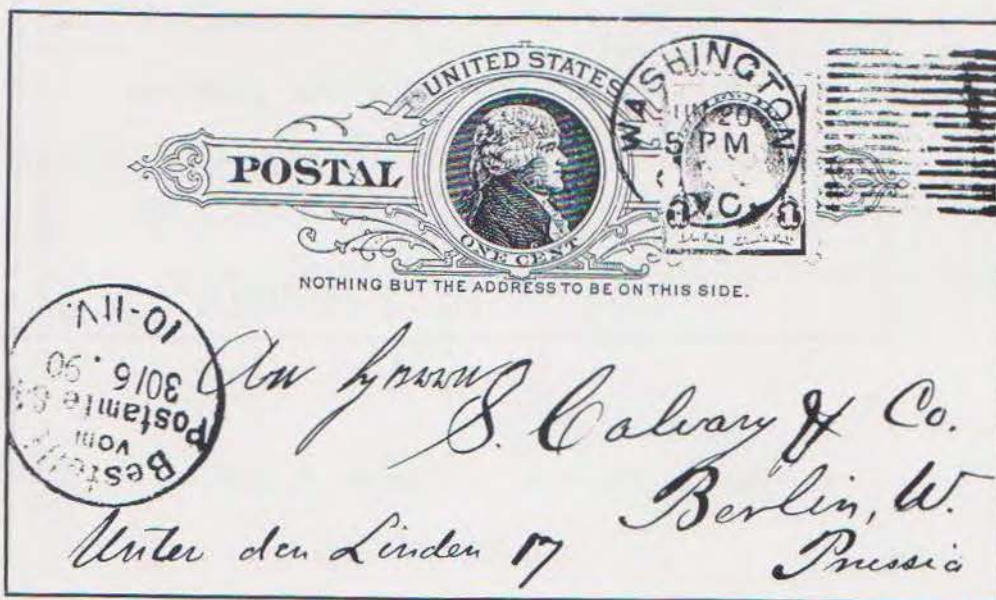 UNITED STATES
POSTAL
ONE CENT
WASHINGTON
JUN 20
5 PM
D.C.
1 1
NOTHING BUT THE ADDRESS TO BE ON THIS SIDE.
10-11V.
30/6. 90
Postamte
vom
Bestellt
An Herren
S. Calvary & Co.
Berlin, W.
Unter den Linden 17
Prussia